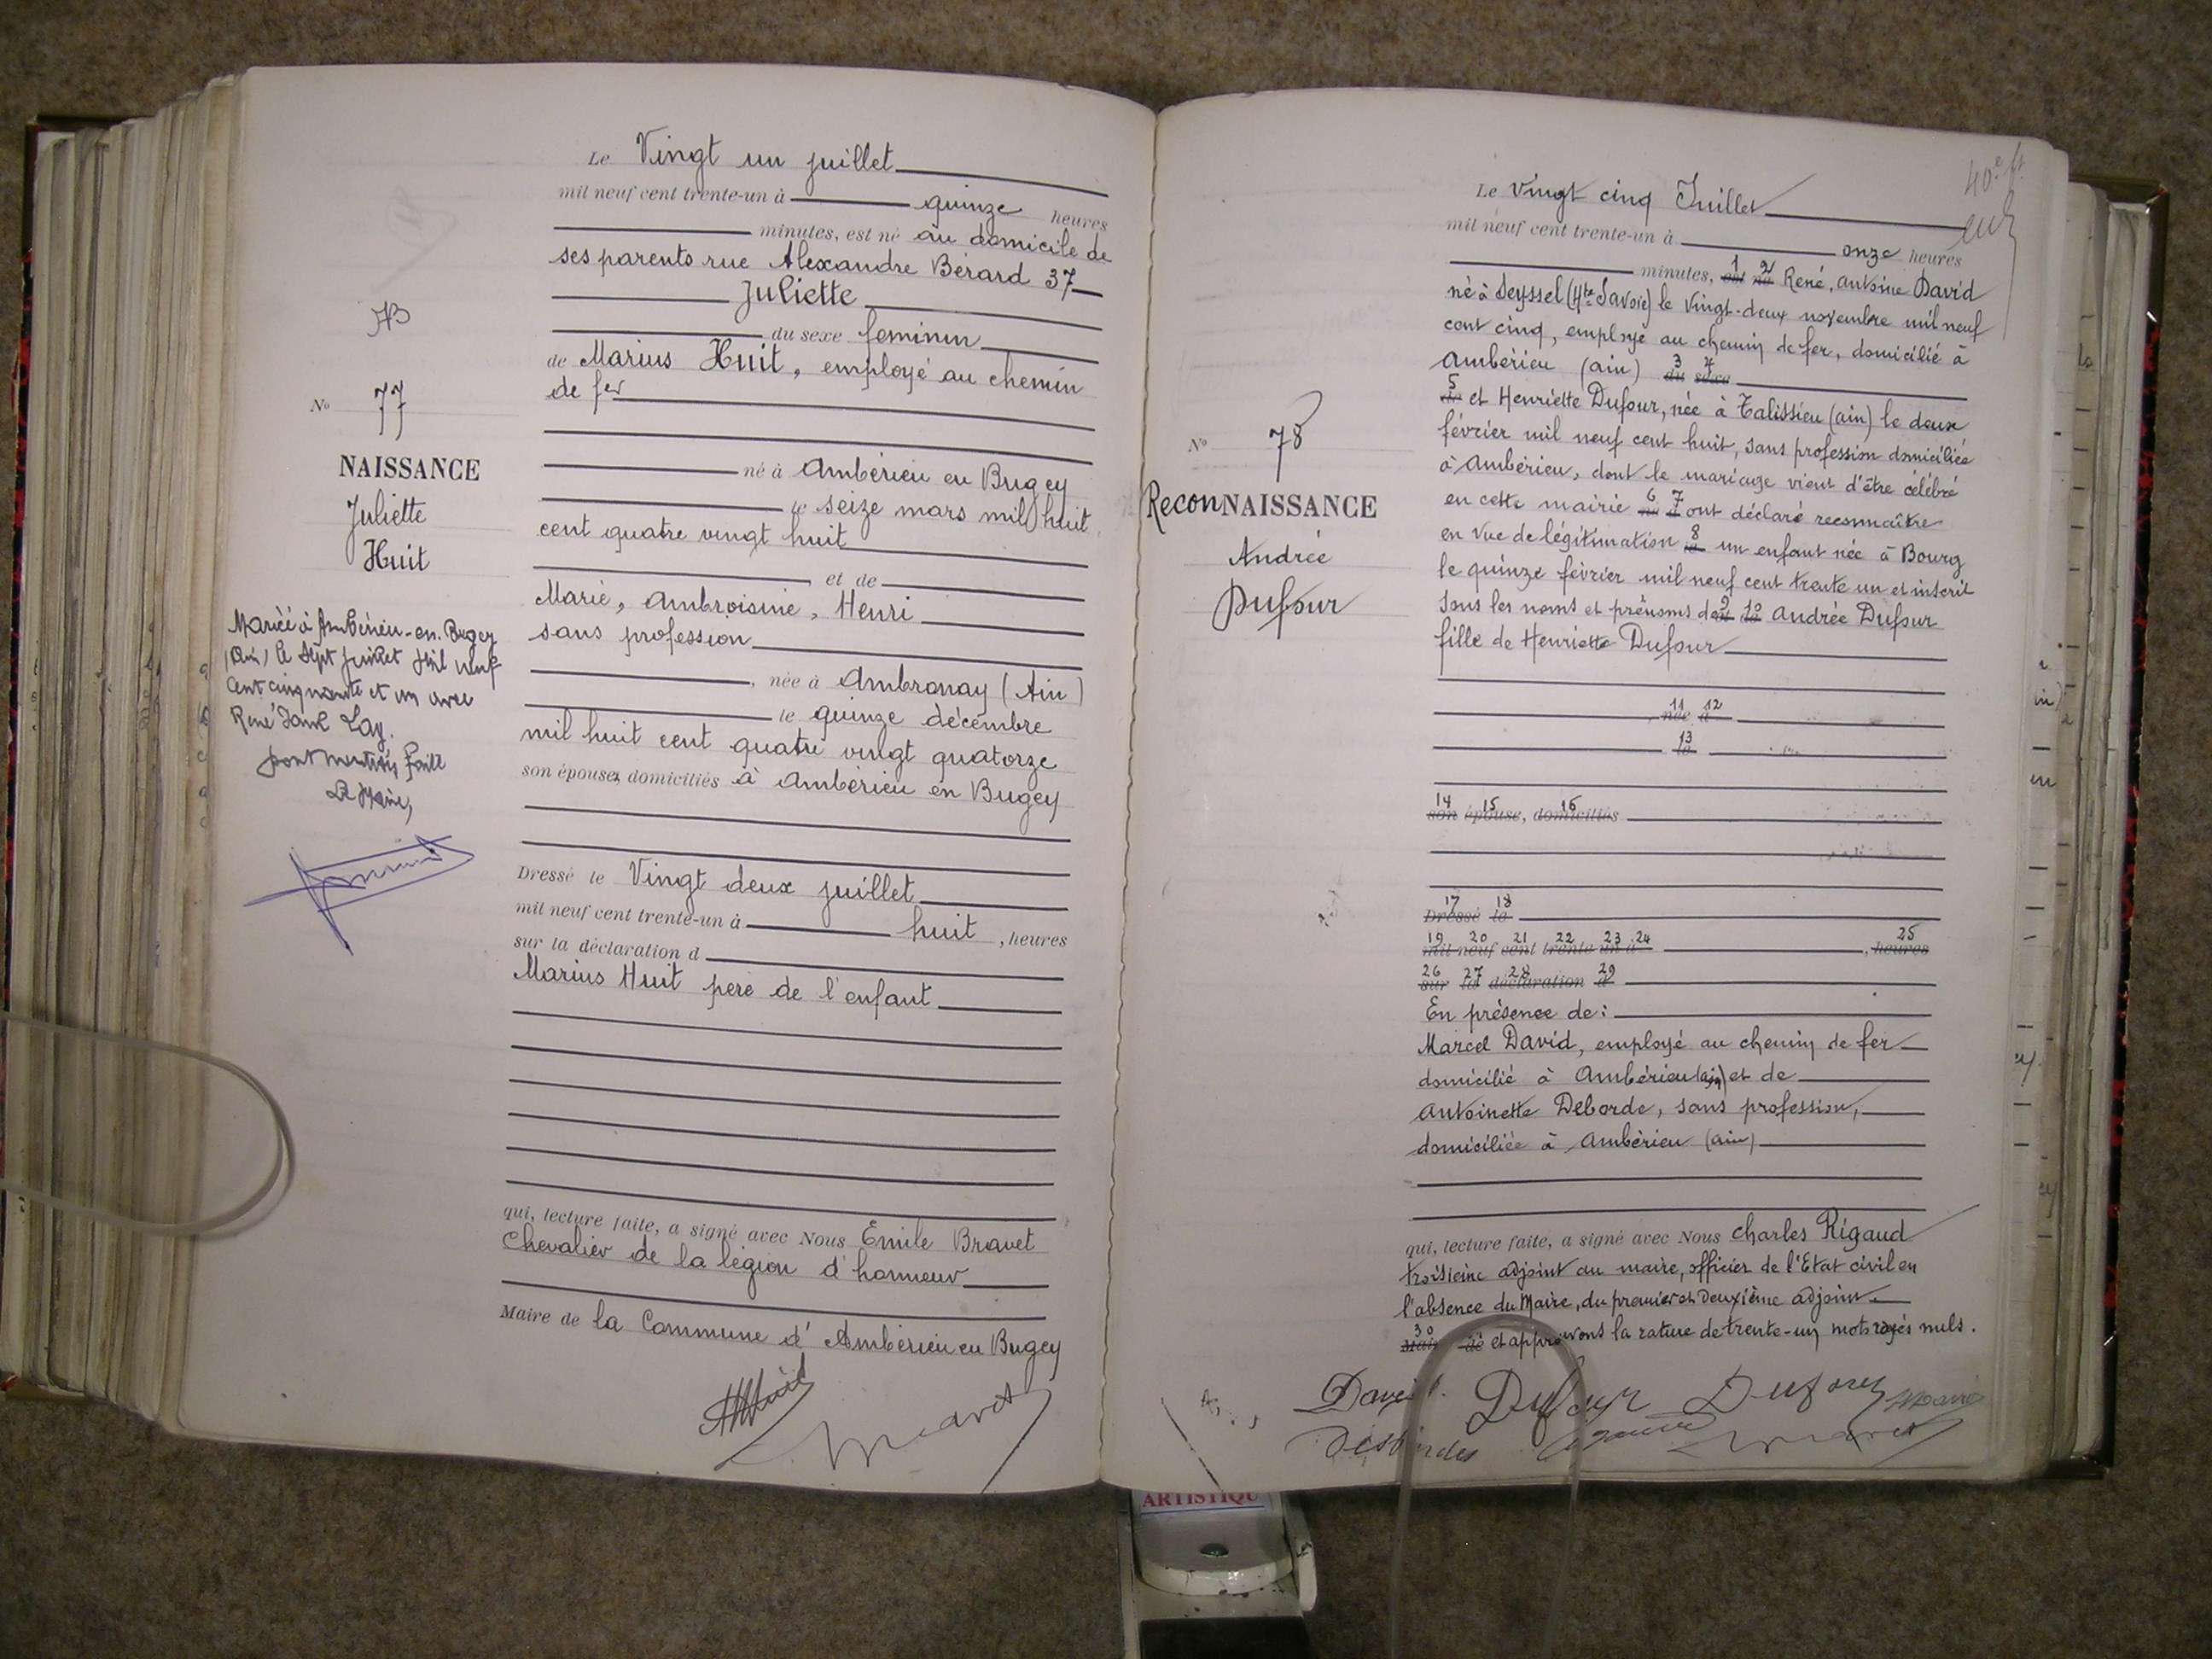 Le Vingt un juillet
mil neuf cent trente-un à quinze heures
minutes, est né au domicile de
ses parents rue Alexandre Bérard 37
Juliette
du sexe feminin
de Marius Huit, employé au chemin
de fer
né à Ambérieu en Bugey
le seize mars mil huit
cent quatre vingt huit
et de
Marie, Ambroisine, Henri
sans profession
née à Ambronay (Ain)
le quinze décembre
mil huit cent quatre vingt quatorze
son épouse, domiciliés à Ambérieu en Bugey
Dressé le Vingt deux juillet
mil neuf cent trente-un à huit, heures
sur la déclaration d
Marius Huit père de l'enfant
qui, lecture faite, a signé avec Nous Emile Bravet
Chevalier de la légion d'honneur
Maire de la Commune d'Ambérieu en Bugey
No 77
NAISSANCE
Juliette
Huit
Mariée à Ambérieu-en-Bugey
(Ain) le sept juillet mil neuf
cent cinquante et un avec
René
Le Maire,
Le vingt cinq Juillet
mil neuf cent trente-un à onze heures
minutes, 1 est 2 né René, Antoine David
né à Seyssel (Hte Savoie) le vingt-deux novembre mil neuf
cent cinq, employé au chemin de fer, domicilié à
Ambérieu (ain) 3 du 4 sexe
5 de et Henriette Dufour, née à Talissieu (ain) le deux
février mil neuf cent huit, sans profession domiciliée
à Ambérieu, dont le mariage vient d'être célébré
en cette mairie 6 né 7 à ont déclaré reconnaître
en vue de légitimation 8 le un enfant née à Bourg
le quinze février mil neuf cent trente un et inscrit
sous les noms et prénoms de 9 et 10 de Andrée Dufour
fille de Henriette Dufour
11 née 12 à
13 le
14 son 15 épouse, 16 domiciliés
17 Dressé 18 le
19 mil 20 neuf 21 cent 22 trente 23 un 24 à, 25 heures
26 sur 27 la 28 déclaration 29 d
En présence de:
Marcel David, employé au chemin de fer
domicilié à Ambérieu (ain) et de
Antoinette Deborde, sans profession,
domiciliée à Ambérieu (ain)
qui, lecture faite, a signé avec Nous Charles Rigaud
troisième adjoint au maire, officier de l'Etat civil en
l'absence du Maire, du premier et Deuxième adjoint
30 Maire de et approuvons la rature de trente-un mots rayés nuls.
David Dufour Dufour
Desbordes
No 78
ReconNAISSANCE
Andrée
Dufour
ARTISTIQU